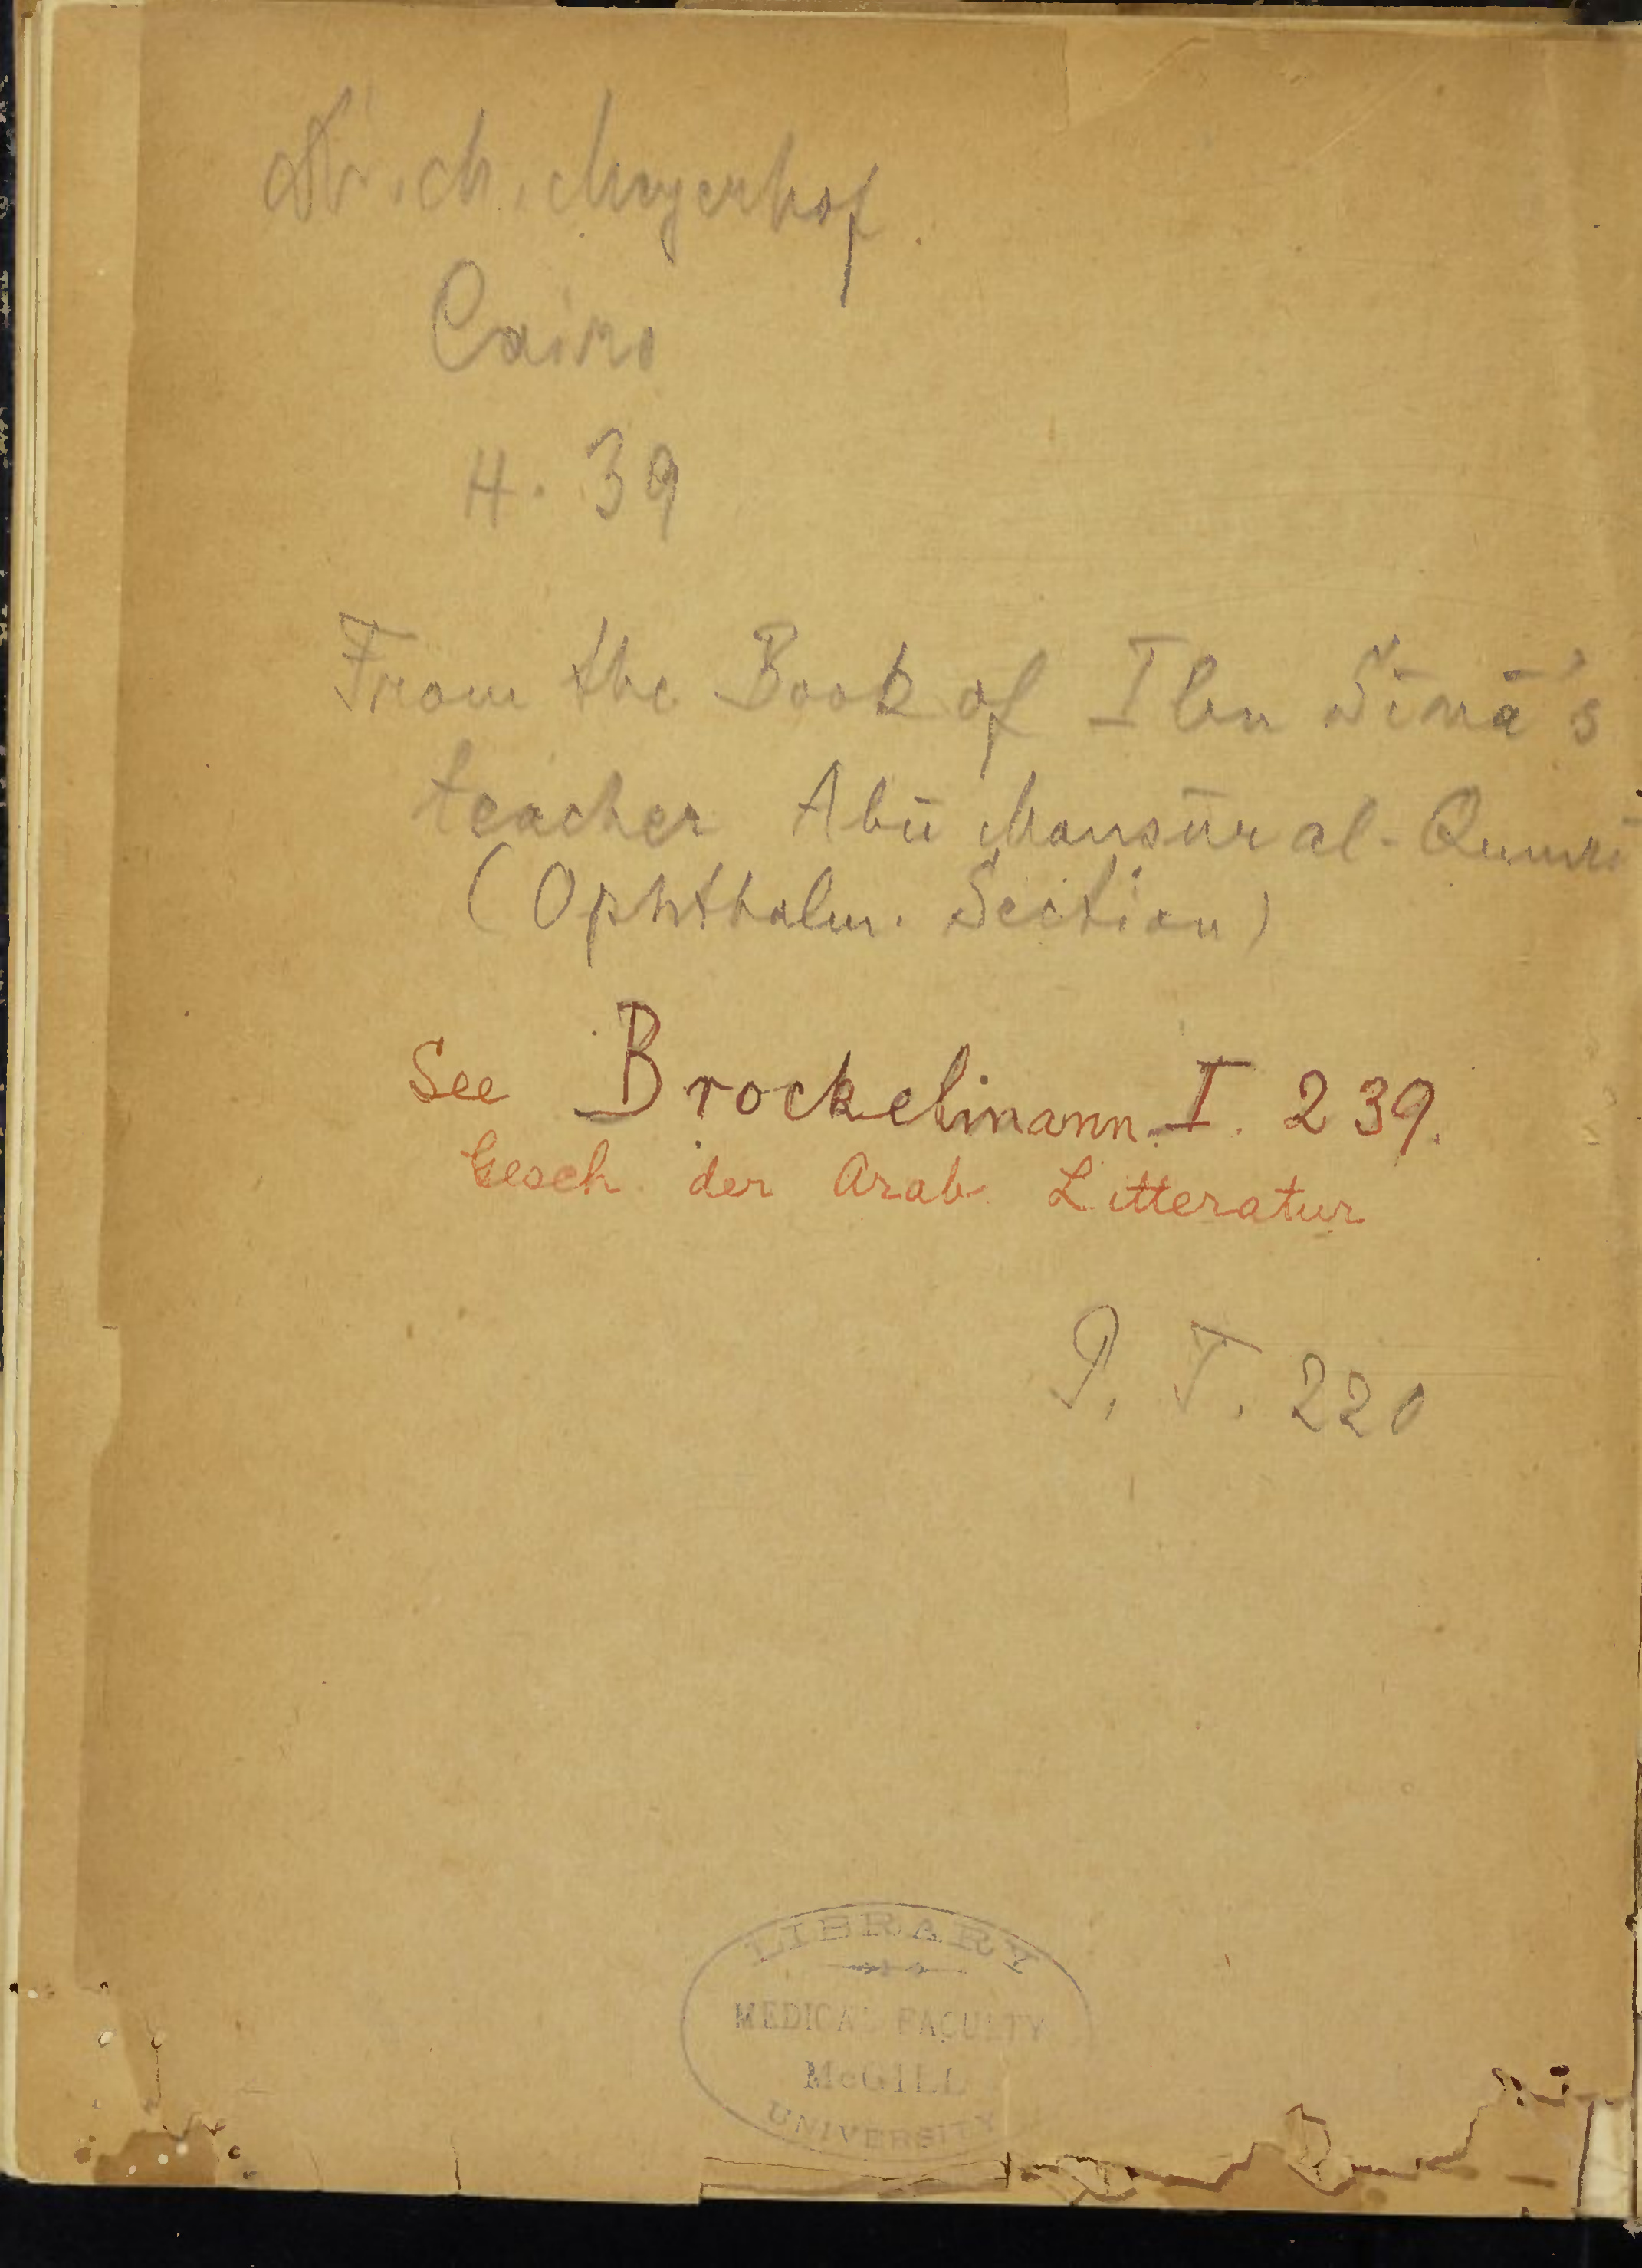 Dr. M. Meyerhof.
Cairo
H. 39
From the Book of Ibn Sīnā's
teacher Abū Mansūr al-Qumrī
(Ophthalm. Section)
See Brockelmann I. 239.
Gesch. der Arab. Litteratur
P. T. 220
LIBRARY
MEDICAL FACULTY
McGILL
UNIVERSITY